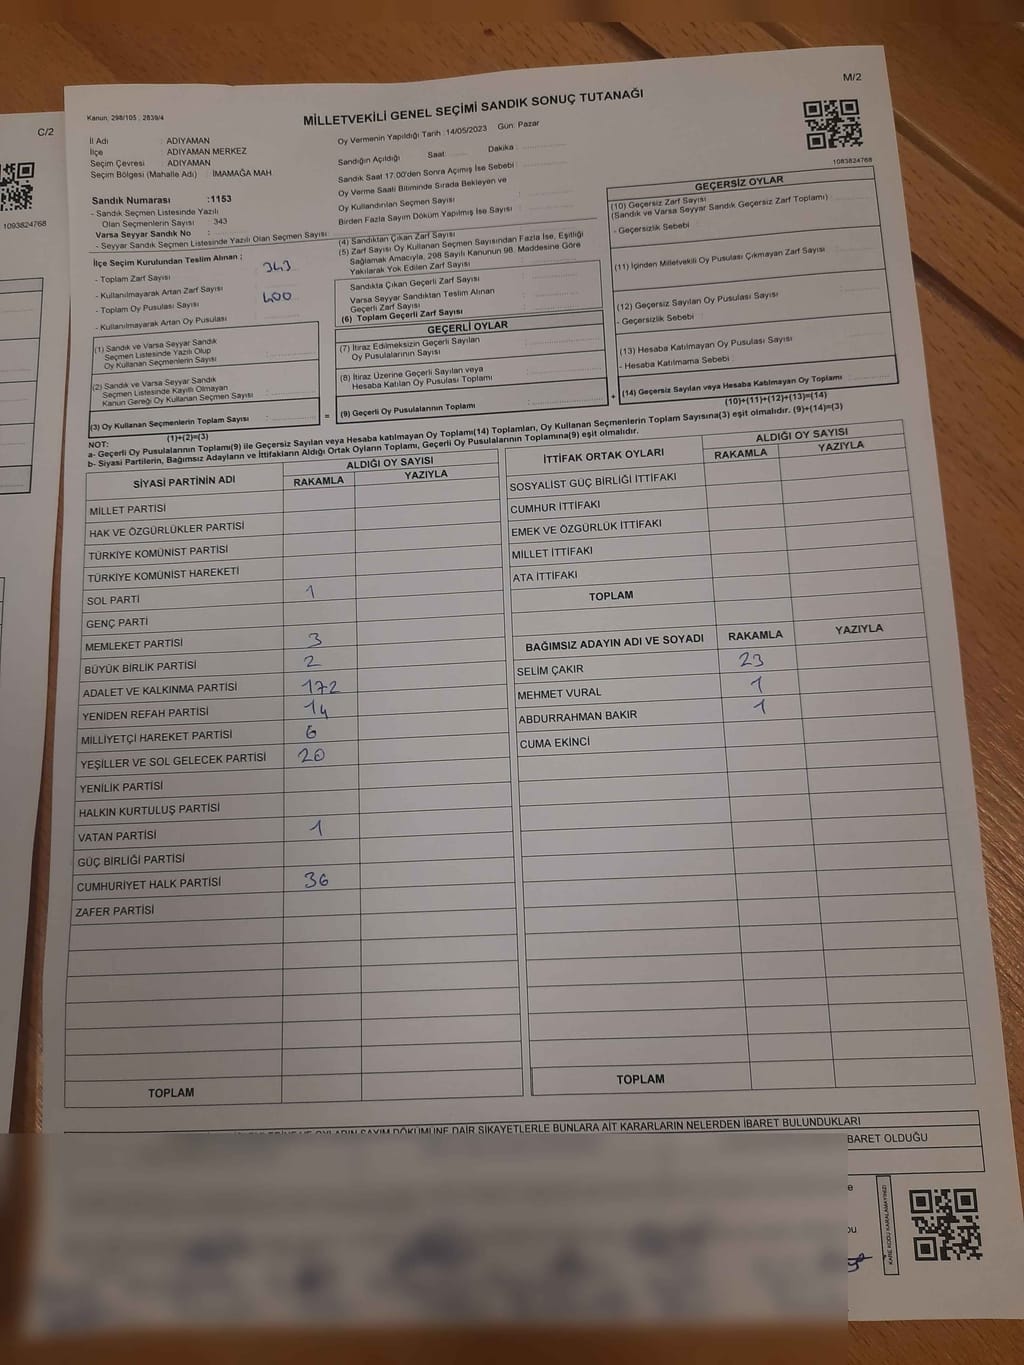 C/2
1093824768
M/2
Kanun, 298/105 , 2839/4
MİLLETVEKİLİ GENEL SEÇİMİ SANDIK SONUÇ TUTANAĞI
1083824768
İl Adı : ADIYAMAN
İlçe : ADIYAMAN MERKEZ
Seçim Çevresi : ADIYAMAN
Seçim Bölgesi (Mahalle Adı) : İMAMAĞA MAH.
Sandık Numarası :1153
- Sandık Seçmen Listesinde Yazılı
Olan Seçmenlerin Sayısı : 343
Varsa Seyyar Sandık No :
- Seyyar Sandık Seçmen Listesinde Yazılı Olan Seçmen Sayısı:
Oy Vermenin Yapıldığı Tarih :14/05/2023 Gün: Pazar
Sandığın Açıldığı Saat Dakika :
Sandık Saat 17.00'den Sonra Açımış İse Sebebi :
Oy Verme Saati Bitiminde Sırada Bekleyen ve
Oy Kullandırılan Seçmen Sayısı
Birden Fazla Sayım Döküm Yapılmış İse Sayısı :
İlçe Seçim Kurulundan Teslim Alınan ;
- Toplam Zarf Sayısı : 343
- Kullanılmayarak Artan Zarf Sayısı :
- Toplam Oy Pusulası Sayısı : 400
- Kullanılmayarak Artan Oy Pusulası :
(1) Sandık ve Varsa Seyyar Sandık
Seçmen Listesinde Yazılı Olup
Oy Kullanan Seçmenlerin Sayısı :
(2) Sandık ve Varsa Seyyar Sandık
Seçmen Listesinde Kayıtlı Olmayan
Kanun Gereği Oy Kullanan Seçmen Sayısı :
(3) Oy Kullanan Seçmenlerin Toplam Sayısı :
(1)+(2)=(3)
(4) Sandıktan Çıkan Zarf Sayısı
(5) Zarf Sayısı Oy Kullanan Seçmen Sayısından Fazla İse, Eşitliği
Sağlamak Amacıyla, 298 Sayılı Kanunun 98. Maddesine Göre
Yakılarak Yok Edilen Zarf Sayısı
Sandıkta Çıkan Geçerli Zarf Sayısı :
Varsa Seyyar Sandıktan Teslim Alınan
Geçerli Zarf Sayısı :
(6) Toplam Geçerli Zarf Sayısı :
GEÇERLİ OYLAR
(7) İtiraz Edilmeksizin Geçerli Sayılan
Oy Pusulalarının Sayısı :
(8) İtiraz Üzerine Geçerli Sayılan veya
Hesaba Katılan Oy Pusulası Toplamı :
=
(9) Geçerli Oy Pusulalarının Toplamı :
+
GEÇERSİZ OYLAR
(10) Geçersiz Zarf Sayısı
(Sandık ve Varsa Seyyar Sandık Geçersiz Zarf Toplamı) :
- Geçersizlik Sebebi :
(11) İçinden Milletvekili Oy Pusulası Çıkmayan Zarf Sayısı :
(12) Geçersiz Sayılan Oy Pusulası Sayısı :
- Geçersizlik Sebebi :
(13) Hesaba Katılmayan Oy Pusulası Sayısı :
- Hesaba Katılmama Sebebi :
(14) Geçersiz Sayılan veya Hesaba Katılmayan Oy Toplamı :
(10)+(11)+(12)+(13)=(14)
NOT:
a- Geçerli Oy Pusulalarının Toplamı(9) ile Geçersiz Sayılan veya Hesaba katılmayan Oy Toplamı(14) Toplamları, Oy Kullanan Seçmenlerin Toplam Sayısına(3) eşit olmalıdır. (9)+(14)=(3)
b- Siyasi Partilerin, Bağımsız Adayların ve İttifakların Aldığı Ortak Oyların Toplamı, Geçerli Oy Pusulalarının Toplamına(9) eşit olmalıdır.
SİYASİ PARTİNİN ADI
ALDIĞI OY SAYISI
RAKAMLA YAZIYLA
MİLLET PARTİSİ
HAK VE ÖZGÜRLÜKLER PARTİSİ
TÜRKİYE KOMÜNİST PARTİSİ
TÜRKİYE KOMÜNİST HAREKETİ
SOL PARTİ 1
GENÇ PARTİ
MEMLEKET PARTİSİ 3
BÜYÜK BİRLİK PARTİSİ 2
ADALET VE KALKINMA PARTİSİ 172
YENİDEN REFAH PARTİSİ 14
MİLLİYETÇİ HAREKET PARTİSİ 6
YEŞİLLER VE SOL GELECEK PARTİSİ 20
YENİLİK PARTİSİ
HALKIN KURTULUŞ PARTİSİ
VATAN PARTİSİ 1
GÜÇ BİRLİĞİ PARTİSİ
CUMHURİYET HALK PARTİSİ 36
ZAFER PARTİSİ
TOPLAM
İTTİFAK ORTAK OYLARI
ALDIĞI OY SAYISI
RAKAMLA YAZIYLA
SOSYALİST GÜÇ BİRLİĞİ İTTİFAKI
CUMHUR İTTİFAKI
EMEK VE ÖZGÜRLÜK İTTİFAKI
MİLLET İTTİFAKI
ATA İTTİFAKI
TOPLAM
BAĞIMSIZ ADAYIN ADI VE SOYADI RAKAMLA YAZIYLA
SELİM ÇAKIR 23
MEHMET VURAL 1
ABDURRAHMAN BAKIR 1
CUMA EKİNCİ
TOPLAM
OYLARIN SAYIM DÖKÜMÜNE DAİR ŞİKAYETLERLE BUNLARA AİT KARARLARIN NELERDEN İBARET BULUNDUKLARI
BARET OLDUĞU
KARE KODU KARALAMAYINIZ!